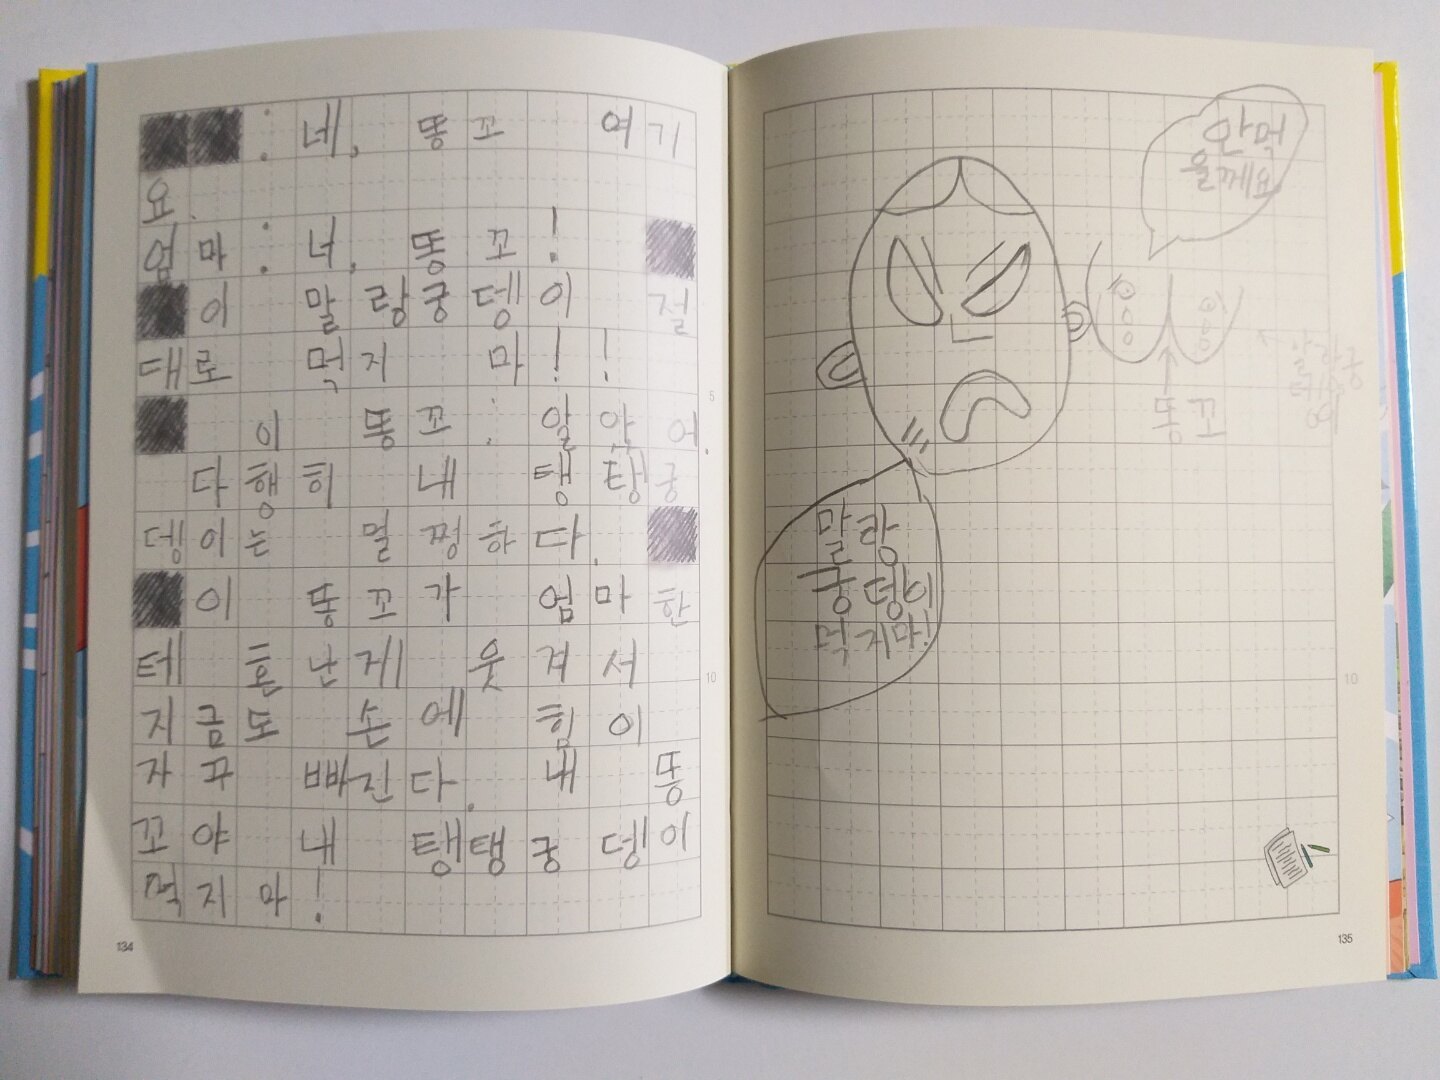 : 네, 똥꼬 여기
요.
엄마: 너, 똥꼬!
이 말랑궁뎅이 절
대로 먹지 마!!
이 똥꼬: 알앚어.
다행히 내 탱탱궁
뎅이는 멀쩡하다.
이 똥꼬가 엄마한
테 혼난게 웃겨서
지금도 손에 힘이
자꾸 빠진다. 내 똥
꼬야 내 탱탱궁뎅이
먹지 마!
134
5
10
안먹
을께요
똥꼬
말랑궁
이
말랑
궁뎅이
먹지마!
10
135